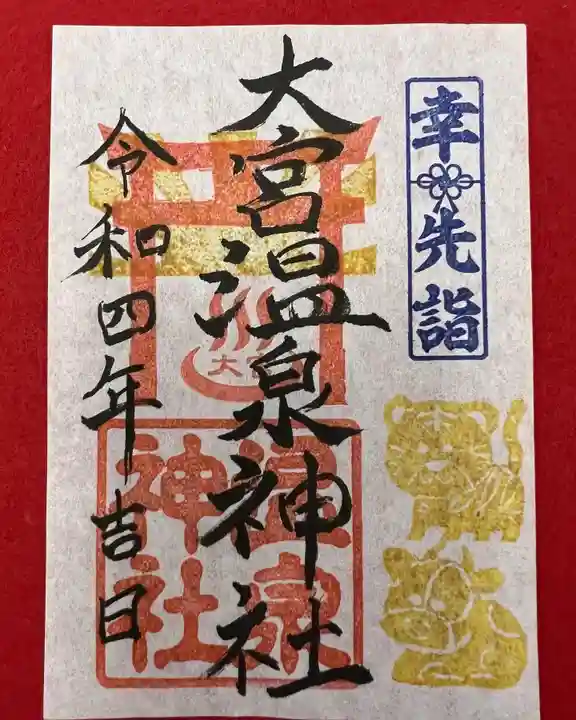 幸先詣
大宮温泉神社
令和四年吉日
大
温泉
神社